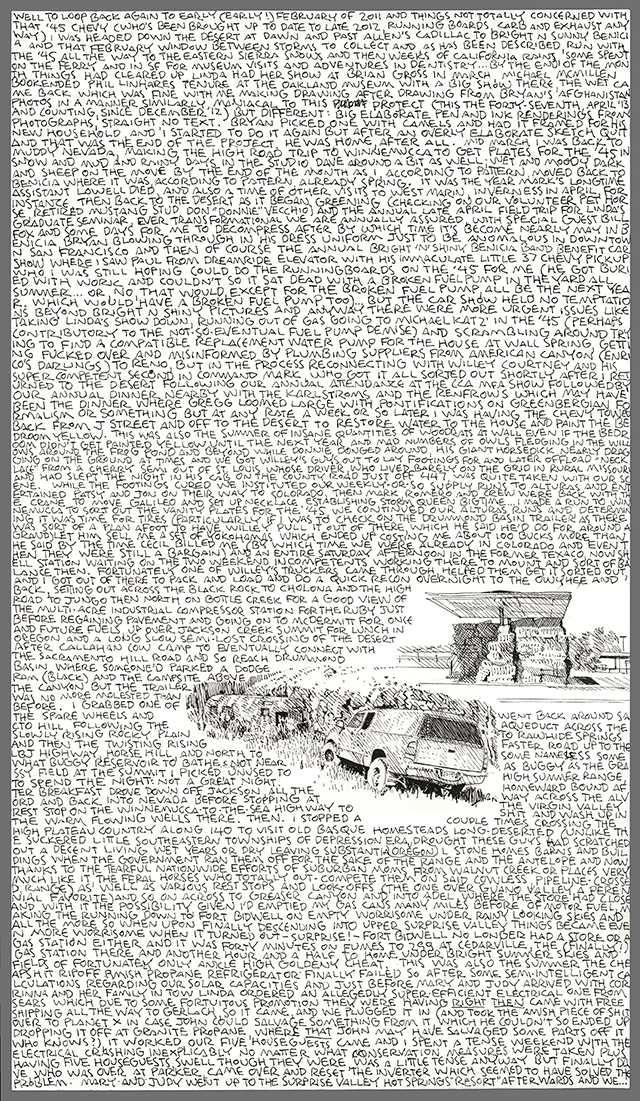 WELL TO LOOP BACK AGAIN TO EARLY (EARLY!) FEBRUARY OF 2011 AND THINGS NOT TOTALLY CONCERNED WITH
THAT '45 CHEVY (WHO'S BEEN BROUGHT UP TO DATE TO LATE 2012, RUNNING BOARDS, CARB AND EXHAUST ANY
WAY) I WAS HEADED DOWN THE DESERT AT DAWN AND PAST ALLEN'S CADILLAC TO BRIGHT N SUNNY BENICI
A AND THAT FEBRUARY WINDOW BETWEEN STORMS TO COLLECT AND AS HAS BEEN DESCRIBED, RUN WITH
THE '45 ALL THE WAY TO THE EASTERN SIERRA SNOWS AND THEN WEEKS OF CALIFORNIA RAINS, SOME SPENT
ON THE FERRY AND IN SF FOR MUSEUM VISITS AND ADVENTURES IN DENTISTRY... BY THE END OF THE MON
TH THINGS HAD CLEARED UP, LINDA HAD HER SHOW AT BRIAN GROSS IN MARCH, MICHAEL MCMILLEN
BOOKENDED PHIL LINHARES TENURE AT THE OAKLAND MUSEUM WITH A BIG SHOW THERE, THE WET CA
ME BACK WHICH WAS FINE WITH ME MAKING DRAWING AFTER DRAWING FROM BRYAN'S AFGHANISTAN
PHOTOS IN A MANNER SIMILARLY MANIACAL TO THIS PROTECT (THIS THE FORTY-SEVENTH, APRIL '13
AND COUNTING, SINCE DECEMBER '12) BUT DIFFERENT: BIG ELABORATE PEN AND INK RENDERINGS FROM
PHOTOGRAPHS, STRAIGHT NO TEXT. BRYAN PICKED ONE WITH CAMELS AND HAD IT FRAMED FOR HIS
NEW HOUSEHOLD, AND I STARTED TO DO IT AGAIN BUT AFTER AN OVERLY ELABORATE SKETCH, QUIT
AND THAT WAS THE END OF THE PROJECT, HE WAS HOME, AFTER ALL. MID MARCH I WAS BACK TO
MUDDY NEVADA, MAKING THE HIGH ROAD TRIP TO WINNEMUCCA TO GET PLATES FOR THE '45 IN
SNOW AND MUD AND RAINY DAYS IN THE STUDIO, DAVE AROUND A BIT AS WELL; WET AND MOODY DAIRY
AND SHEEP ON THE MOVE BY THE END OF THE MONTH AS I, ACCORDING TO PATTERN, MOVED BACK TO
BENICIA WHERE IT WAS, ACCORDING TO PATTERN ALREADY SPRING. IT WAS THE YEAR MARK'S LONGTIME
ASSISTANT LOWELL DIED, AND ALSO A TIME OF OTHER VISITS, TO WEST MARIN, INVERNESS IN APRIL FOR
INSTANCE, THEN BACK TO THE DESERT AS IT BEGAN GREENING (CHECKING ON OUR VOLUNTEER PET HOR
SE, RETIRED MUSTANG STUD DON "DONNIE" VECHIO) AND THE ANNUAL LATE APRIL FIELD TRIP FOR LINDA'S
GRADUATE SEMINAR, EVER TRANSFORMATIONAL WE ARE ANNUALLY ASSURED, WITH SPECIAL GUEST NEVILLE
FOX AND SOME DAYS FOR ME TO DECOMPRESS AFTER BY WHICH TIME IT'S BECOME NEARLY MAY IN B
ENICIA, BRYAN BLOWING THROUGH IN HIS DRESS UNIFORM JUST TO BE ANOMALOUS IN DOWNTOW
N SAN FRANCISCO AND THEN OF COURSE THE ANNUAL BRIGHT 'N' SHINY BENICIA BAND BENEFIT CAR
SHOW WHERE I SAW PAUL FROM DREAMRIDE ELEVATOR WITH HIS IMMACULATE LITTLE 37 CHEVY PICKUP
WHO I WAS STILL HOPING COULD DO THE RUNNINGBOARDS ON THE '45 FOR ME (HE GOT BURI
ED WITH WORK, AND COULDN'T SO IT SAT DEAD WITH A BROKEN FUEL PUMP IN THE YARD ALL
SUMMER... OR NO, THAT WOULD, EXCEPT FOR THE BROKEN FUEL PUMP, ALL BE THE NEXT SEA
R, WHICH WOULD HAVE A BROKEN FUEL PUMP TOO)... BUT THE CAR SHOW HELD NO TEMPTATIO
NS BEYOND BRIGHT N SHINY PICTURES AND ANYWAY THERE WERE MORE URGENT ISSUES LIKE
TAKING LINDA'S SHOW DOWN, RUNNING OUT OF GAS GOING TO MICHAEL KATZ' IN THE '45 (PERHAPS
CONTRIBUTORY TO THE NOT-SO-EVENTUAL FUEL PUMP DEMISE) AND SCRAMBLING AROUND TRY
ING TO FIND A COMPATIBLE REPLACEMENT WATER PUMP FOR THE HOUSE AT WALL SPRING, GETTI
NG FUCKED OVER AND MISINFORMED BY PLUMBING SUPPLIERS FROM AMERICAN CANYON (ENRI
CO'S DARLINGS) TO RENO, BUT IN THE PROCESS RECONNECTING WITH WILLEY COURTNEY AND HIS
SUPER COMPETENT SECOND IN COMMAND MARK, WHO GOT IT ALL SORTED OUT SHORTLY AFTER I RET
URNED TO THE DESERT FOLLOWING OUR ANNUAL ATTENDANCE AT THE CCA MFA SHOW FOLLOWED BY
OUR ANNUAL DINNER NEARBY WITH THE KARLSTROMS AND THE RENFROWS WHICH MAY HAVE
BEEN THE DINNER WHERE GREGG LOOMED LARGE WITH PONTIFICATIONS ON GREENBERGIAN FO
RMALISM OR SOMETHING BUT AT ANY RATE A WEEK OR SO LATER I WAS HAVING THE CHEVY TOWED
BACK FROM J STREET AND OFF TO THE DESERT TO RESTORE WATER TO THE HOUSE AND PAINT THE BE
DROOM YELLOW. THIS WAS ALSO THE SUMMER OF INSANE QUANTITIES OF WOODRATS AT WALL EVEN IF THE BEDR
OOM DIDN'T GET PAINTED YELLOW UNTIL THE NEXT YEAR AND MAD NUMBERS OF OWLS FLEDGING IN THE WILL
OWS AROUND THE FROG POND AND BEYOND WHILE DONNIE DONGED AROUND, HIS GIANT HORSEDICK NEARLY DRAG
GING ON THE GROUND AT TIMES AND WE GOT WILLEY'S GUYS OUT TO LAY FOOTINGS FOR AND LATER OFFLOAD "NECK
LACE" FROM A CHERRY SEMI OUT OF ST. LOUIS WHOSE DRIVER, WHO LIVED BARELY ON THE GRID IN RURAL MISSOURI
AND HAD SLEPT THE NIGHT IN HIS CAB ON THE COUNTY ROAD JUST OFF 447, WAS QUITE TAKEN WITH OUR SC
ENE. WHILE THE FOOTINGS CURED WE INSTITUTED OUR WEEKLY-OR-SO SUPPLY RUNS TO ALTURAS AND ENT
ERTAINED PATSY AND JON ON THEIR WAY TO COLORADO. THEN MARK, ROMERO AND CREW WERE BACK WITH TH
E CRANE TO MOVE GALILEO AND SET UP NECKLACE, ESTABLISHING STORM QUEEN BIGTIME. I MADE A RUN TO WI
NNEMUCCA TO SORT OUT THE VANITY PLATES FOR THE '45, WE CONTINUED OUR ALTURAS RUNS AND DETERMIN
ING IT WAS TIME FOR TIRES (PARTICULARLY IF I WAS TO CHECK ON THE DRUMMOND BASIN TRAILER AS THERE
WAS SORT OF A PLAN AFOOT TO HAVE WILLEY PULL IT OUT OF THERE WHICH HE SAID HE'D DO FOR AROUND A
GRAND) LET HIM SELL ME A SET OF YOKOHAMAS WHICH ENDED UP COSTING ME ABOUT 100 BUCKS MORE THAN
HE SAID BY THE TIME CECIL BILLED ME (BY WHICH TIME WE WERE ALREADY IN COLORADO AND EVEN T
HEN THEY WERE STILL A BARGAIN) AND AN ENTIRE SATURDAY AFTERNOON IN THE FORMER TEXACO NOW SH
ELL STATION WAITING ON THE TWO WEEKEND INCOMPETENTS WORKING THERE TO MOUNT AND SORT OF BA
LANCE THEM. FORTUNATELY ONE OF WILLEY'S TRUCKERS CAME THROUGH, HELPED THEM GET IT SORTED OUT
AND I GOT OUT OF THERE TO PACK AND LOAD AND DO A QUICK RECON OVERNIGHT TO THE OWYHEE AND
BACK. SETTING OUT ACROSS THE BLACK ROCK TO CHOLONA AND THE HIGH
ROAD TO JUNGO THEN NORTH ON BOTTLE CREEK FOR A GOOD VIEW OF
THE MULTI-ACRE INDUSTRIAL COMPRESSOR STATION FOR THE RUBY JUST
BEFORE REGAINING PAVEMENT AND GOING ON TO MCDERMITT FOR ONCE
AND FUTURE FUELS, UP OVER JACKSON CREEK SUMMIT FOR LUNCH IN
OREGON AND A LONG SLOW SEMI-LOST CROSSING OF THE DESERT
AFTER CALLAHAN COW CAMP TO EVENTUALLY CONNECT WITH
THE SACRAMENTO HILL ROAD AND SO REACH DRUMMOND
BASIN WHERE SOMEONE'D PARKED A DODGE
RAM (BLACK) AND THE CAMPSITE ABOVE
THE CANYON BUT THE TRAILER
WAS NO MORE MOLESTED THAN
BEFORE. I GRABBED ONE OF
THE SPARE WHEELS AND
CTO HILL FOLLOWING THE
SLOWLY RISING ROCKY PLAIN
AND THEN THE TWISTING RISING
LBJ HIGHWAY, HORSE HILL AND NORTH TO
WHAT BUGGY RESERVOIR TO BATHE NOT NEAR
SSY FIELD AT THE SUMMIT I PICKED UNUSED TO
TO SPEND THE NIGHT: NOT A GREAT NIGHT.
TER BREAKFAST DROVE DOWN OFF JACKSON, ALL THE
ORD AND BACK INTO NEVADA BEFORE STOPPING AT
REST STOP ON THE WINNEMUCCA-TO-THE-SEA HIGHWAY TO
THE WARM FLOWING WELLS THERE. THEN. I STOPPED A
WENT BACK AROUND SA
AQUEDUCT ACROSS THE
TO RAWHIDE SPRINGS
FASTER, ROAD UP TO THE
SOME NAMELESS SOME
BUGGY AS THE GRA
HIGH SUMMER RANGE
HOMEWARD BOUND AF
WAY ACROSS THE ALV
THE VIRGIN VALLEY
SHIT AND WASH UP IN
COUPLE TIMES CROSSING THE
HIGH PLATEAU COUNTRY ALONG 140 TO VISIT OLD BASQUE HOMESTEADS LONG-DESERTED (UNLIKE TH
E SUCKERED LITTLE SOUTHEASTERN TOWNSHIPS OF DEPRESSION ERA DROUGHT THESE GUYS HAD SCRATCHED
OUT A DECENT LIVING WET YEARS OR DRY LEAVING SUBSTANTIAL (OREGON) L STONE HOMES BARNS AND BUILD
DINGS WHEN THE GOVERNMENT RAN THEM OFF FOR THE SAKE OF THE RANGE AND THE ANTELOPE AND NOW
THANKS TO THE TEARFUL NATIONWIDE EFFORTS OF SUBURBAN MOMS FROM WALNUT CREEK OR PLACES VERY
MUCH LIKE IT THE FERAL HORSES WHO TOTALLY OUT-COMPETE THEM ON SAID COWLESS, PIPELINE-CORRO
D RANGES) AS WELL AS VARIOUS REST STOPS AND LOOK-OFFS (THE ONE OVER GUANO VALLEY A PEREN
NIAL FAVORITE) AND SO ON ACROSS TO GREASER CANYON AND INTO ADEL WHERE THE STORE HAD CLOSE
AND WITH IT THE POSSIBILITY, GIVEN I'D EMPTIED MY GAS CANS MANY MILES BEFORE, OF MOTOR FUEL, M
AKING THE RUNNING DOWN TO FORT BIDWELL ON EMPTY WORRISOME UNDER RAINY LOOKING SKIES AND
ALL THE MORE SO WHEN UPON FINALLY DESCENDING INTO UPPER SURPRISE VALLEY THINGS BECAME EVE
N MORE WORRISOME WHEN IT TURNED OUT - SURPRISE! - FORT BIDWELL NO LONGER HAD A STORE OR A
GAS STATION EITHER AND IT WAS FORTY MINUTES ON FUMES TO 299 AT CEDARVILLE, THE (FINALLY!)
GAS STATION THERE AND ANOTHER HOUR AND A HALF TO HOME, UNDER BRIGHT SUMMER SKIES AND
FIELDS OF FORTUNATELY ONLY ANKLE HIGH GOLDEN CHEAT. THIS WAS ALSO THE SUMMER THE CHE
APSHIT RIPOFF AMISH PROPANE REFRIGERATOR FINALLY FAILED SO AFTER SOME SEMI-INTELLIGENT CA
LCULATIONS REGARDING OUR SOLAR CAPACITIES AND JUST BEFORE MARY AND JUDY ARRIVED WITH COR
RINNA AND HER FAMILY IN TOW LINDA ORDERED AN ALLEGEDLY SUPER-EFFICIENT ELECTRICAL ONE FROM
SEARS WHICH DUE TO SOME FORTUITOUS PROMOTION THEY WERE HAVING RIGHT THEN CAME WITH FREE
SHIPPING ALL THE WAY TO GERLACH, SO IT CAME, AND WE PLUGGED IT IN (AND TOOK THE AMISH PIECE OF SHIT
OVER TO PLANET X IN CASE JOHN COULD SALVAGE SOMETHING FROM IT, WHICH HE COULDN'T SO ENDED UP
DROPPING IT OFF AT GRANITE PROPANE, WHERE THAT JOHN MAY HAVE SALVAGED SOME PARTS OFF IT
WHO KNOWS?) IT WORKED, OUR FIVE HOUSEGUESTS CAME AND I SPENT A TENSE WEEKEND WITH THE
ELECTRICAL CRASHING INEXPLICABLY NO MATTER WHAT CONSERVATION MEASURES WERE TAKEN PLUS
HAVING FIVE HOUSEGUESTS, SWELL THOUGH THEY WERE, WAS A LITTLE TENSE ANYWAY BUT FINALLY DA
VE, WHO WAS OVER AT PARKER, CAME OVER AND RESET THE INVERTER WHICH SEEMED TO HAVE SOLVED THE
PROBLEM. MARY AND JUDY WENT UP TO THE SURPRISE VALLEY HOT SPRINGS "RESORT" AFTERWARDS AND WE...